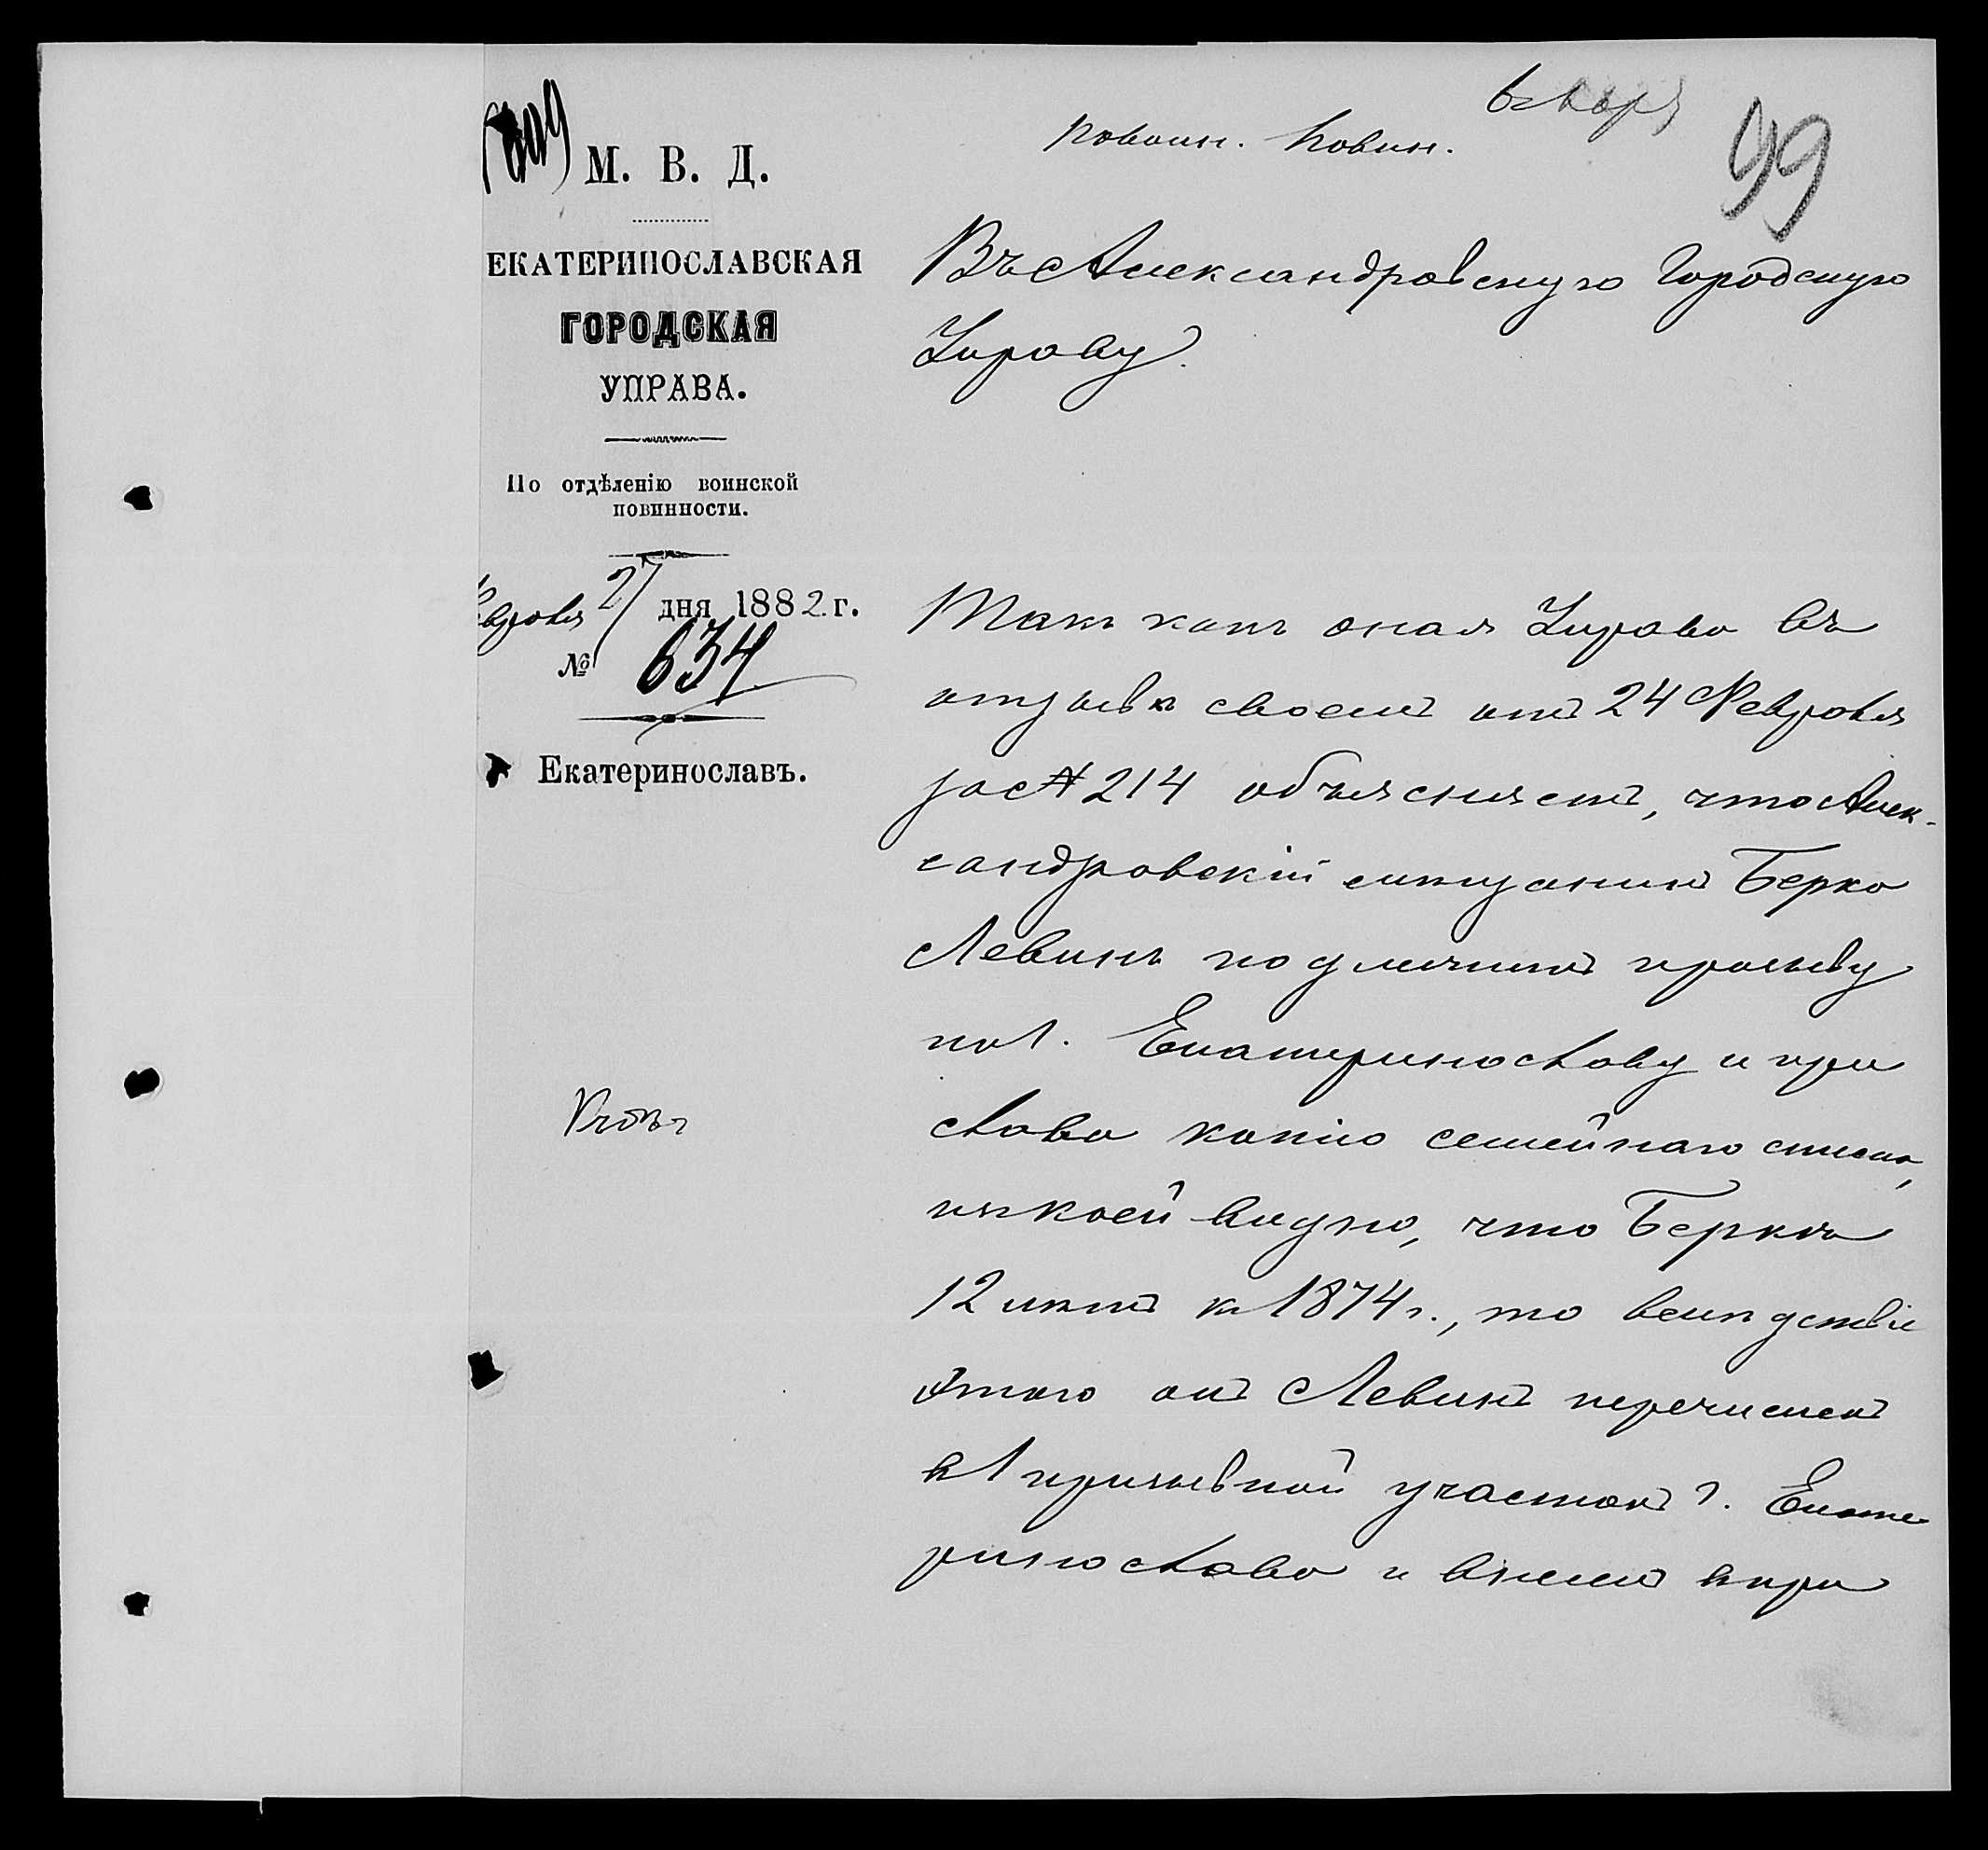 99
по воин. повин.
М. В. Д.
ЕКАТЕРИНОСЛАВСКАЯ
ГОРОДСКАЯ
УПРАВА.
По отдѣленію воинской
повинности.
Февраля 27 дня 1882 г.
№ 634
Екатеринославъ.
Въ Александровскую Городскую
Управу.
Такъ какъ оная Управа въ
отзывѣ своемъ отъ 24 Февраля
за № 214 объясняетъ, что Алек-
сандровскій мѣщанинъ Берко
Левинъ подлежитъ призыву
по г. Екатеринославу и при
слава копію семейнаго списка,
изъ коей видно, что Беркѣ
12 лѣтъ къ 1874 г., то вслѣдствіе
этого онъ Левинъ перечисленъ
въ 1 призывной участокъ г. Екате
ринослава и внесенъ въ при